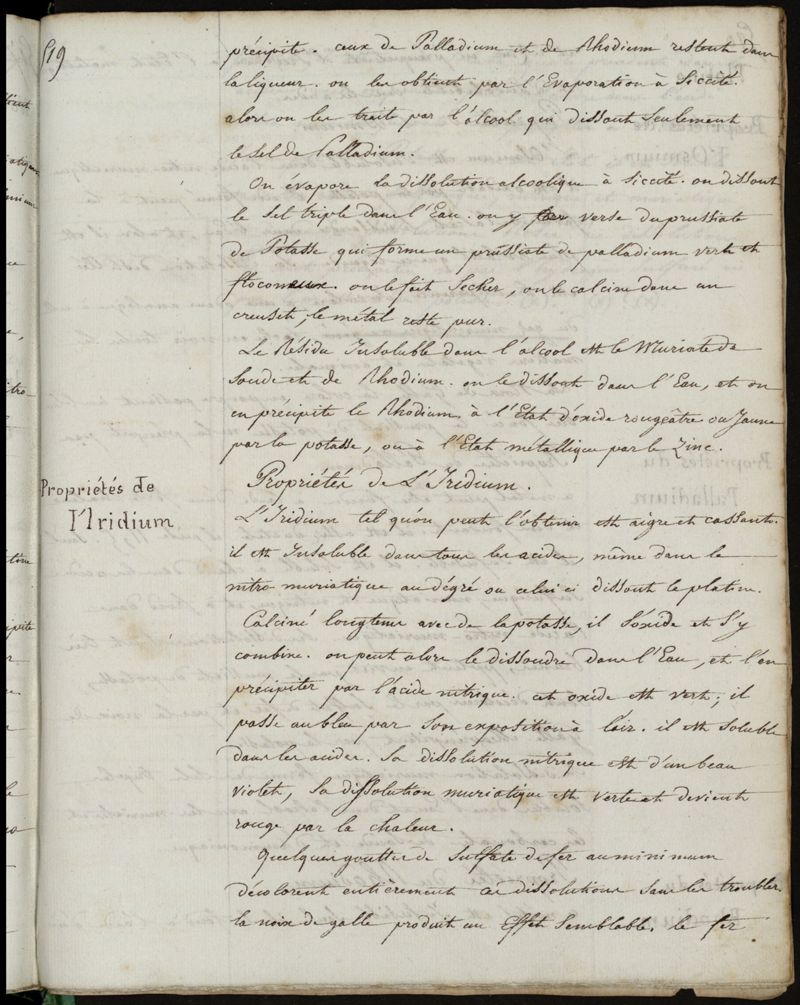 519
précipite. ceux de Palladium et de Rhodium restent dans
la liqueur. on les obtient par l'Evaporation à Siccité.
alors on les traite par l'alcool qui dissout Seulement
le Sel de Palladium.
On évapore la dissolution alcoolique à Siccité. on dissout
le Sel triple dans l'Eau. on y verse du prussiate
de Potasse qui forme un prussiate de palladium verte et
floconeux. on le fait Secher, on le calcine dans un
creuset, le métal reste pur.
Le Résidu Insoluble dans l'alcool est le Muriate de
Soude et de Rhodium. on le dissout dans l'Eau, et on
en précipite le Rhodium à l'Etat d'oxide rougeâtre ou Jaune
par la potasse, ou à l'Etat métallique par le Zinc.
Propriétés de
l'Iridium
Propriétés de L'Iridium.
L'Iridium tel qu'on peut l'obtenir est aigre et cassant.
il est Insoluble dans tous les acides, même dans le
nitro muriatique au dégré ou celui ci dissout le platine.
Calciné longtems avec de la potasse, il S'oxide et S'y
combine. on peut alors le dissoudre dans l'Eau, et l'en
précipiter par l'acide nitrique. cet oxide est vert; il
passe au bleu par Son exposition à l'air. il est Soluble
dans les acides. Sa dissolution nitrique est d'un beau
violet, Sa dissolution muriatique est verte et devient
rouge par la chaleur.
Quelques gouttes de Sulfate de fer au minimum
décolorent entièrement ces dissolutions Sans les troubler.
la noix de galle produit un Effet Semblable. le fer